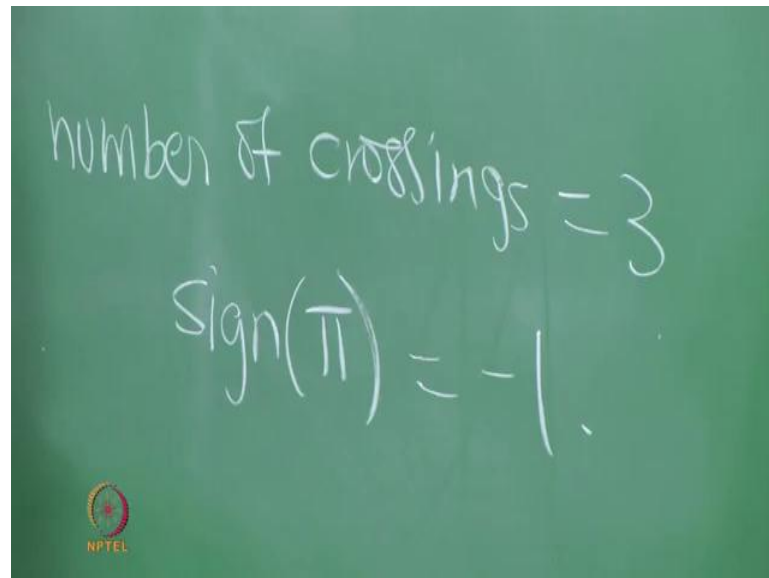 number of crossings = 3
sign(π) = -1.
NPTEL